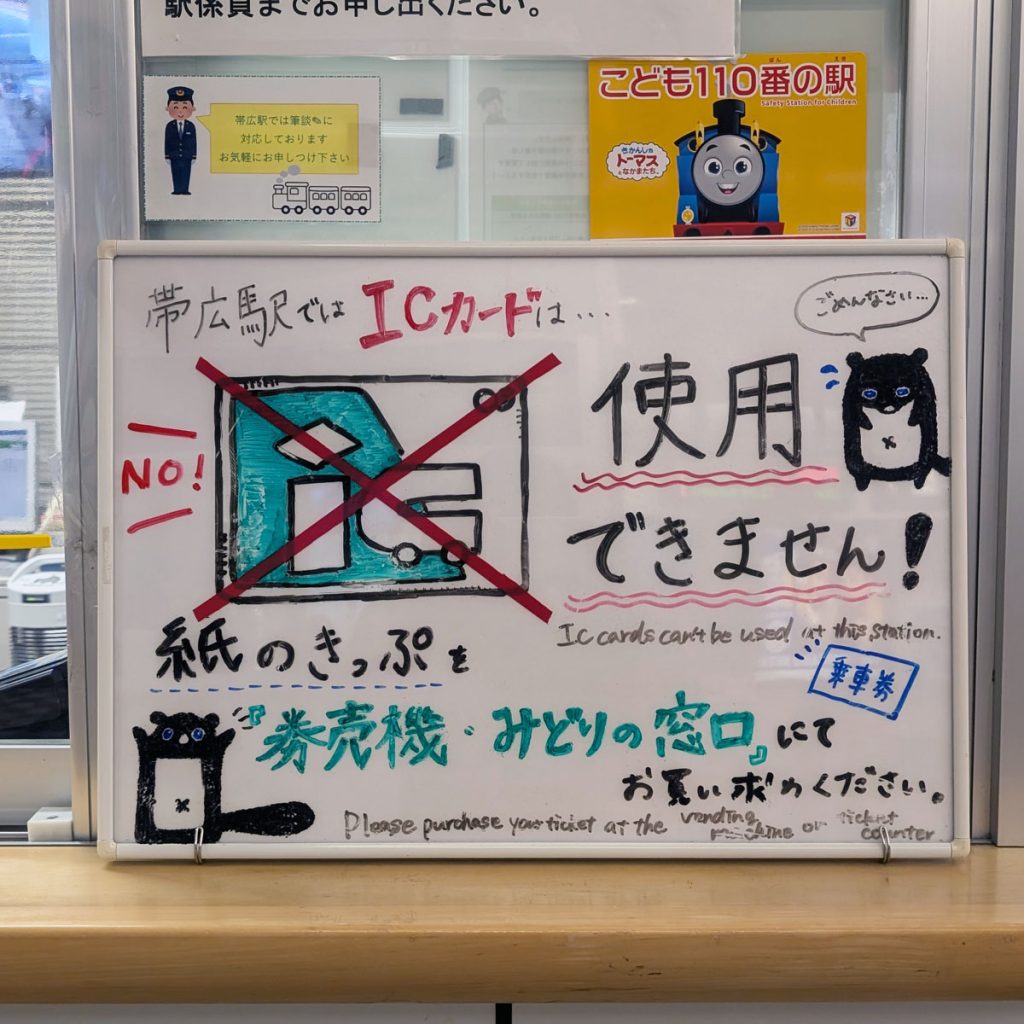 駅係員までお申し出ください。
帯広駅では筆談✎に
対応しております
お気軽にお申しつけ下さい
こども110番の駅
ばん えき
Safety Station for Children
きかんしゃ
トーマス
となかまたち。
帯広駅では ICカードは…
ごめんなさい…
NO!
使用
できません!
Ic cards can't be used at this station.
乗車券
紙のきっぷを
『券売機・みどりの窓口』にて
お買い求めください。
Please purchase your ticket at the vending machine or ticket counter